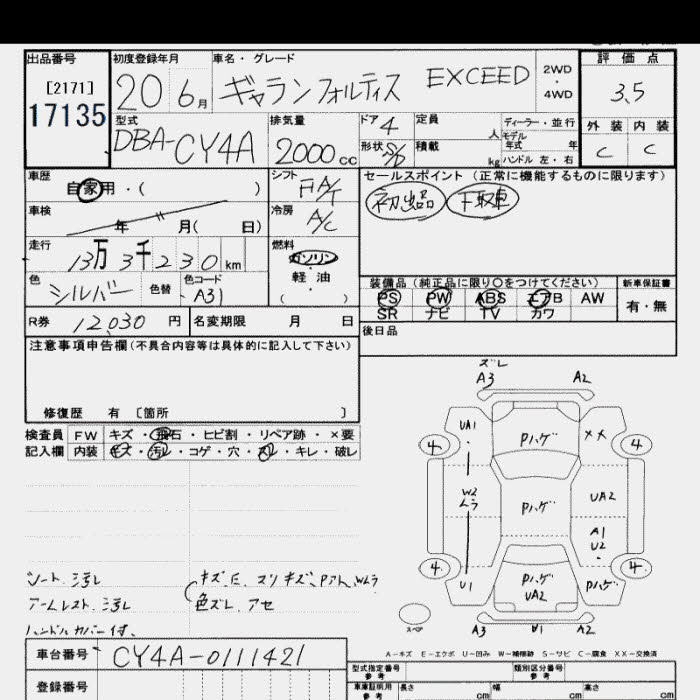 出品番号 初度登録年月 車名・グレード 評価点
[2171]
17135
20 6月 ギャランフォルティス EXCEED 2WD・4WD 3.5
型式 排気量 ドア 4 定員 人 ディーラー・並行 外装 内装
DBA-CY4A 2000cc 形状 S/D 積載 kg モデル年式 年 ハンドル 左・右 C C
車歴 自家用・( ) シフト FA/T セールスポイント(正常に機能するものに限ります)
初出品 下取車
車検 年 月( 日) 冷房 A/C
走行 13万3千230km 燃料 ガソリン
軽・油
( )
色 シルバー 色替 色コード A31
装備品(純正品に限り〇をつけてください) 新車保証書
PS PW ABS エアB AW 有・無
SR ナビ TV カワ
R券 12,030円 名変期限 月 日 後日品
注意事項申告欄(不具合内容等は具体的に記入して下さい)
修復歴 有 [箇所 ]
検査員 FW キズ・飛石・ヒビ割・リペア跡・×要
記入欄 内装 キズ・汚レ・コゲ・穴・スレ・キレ・破レ
ズレ
A3 A2
UA1 Pハゲ XX
4 4
W2 ムラ Pハゲ UA2
A1
U2
4 4
U1 Pハゲ UA2 Pハゲ
スペア A3 A2
シート シミ汚レ キズ、E、スリキズ、Pアト、Wムラ
アームレスト シミ汚レ 色ズレ、アセ
ハンドルカバー付、
A－キズ E－エクボ U－凹み W－補修跡 S－サビ C－腐食 XX－交換済
車台番号 CY4A-0111421
型式指定番号 参考 類別区分番号 参考
登録番号 車庫証明用 参考 長さ cm 幅 cm 高さ cm